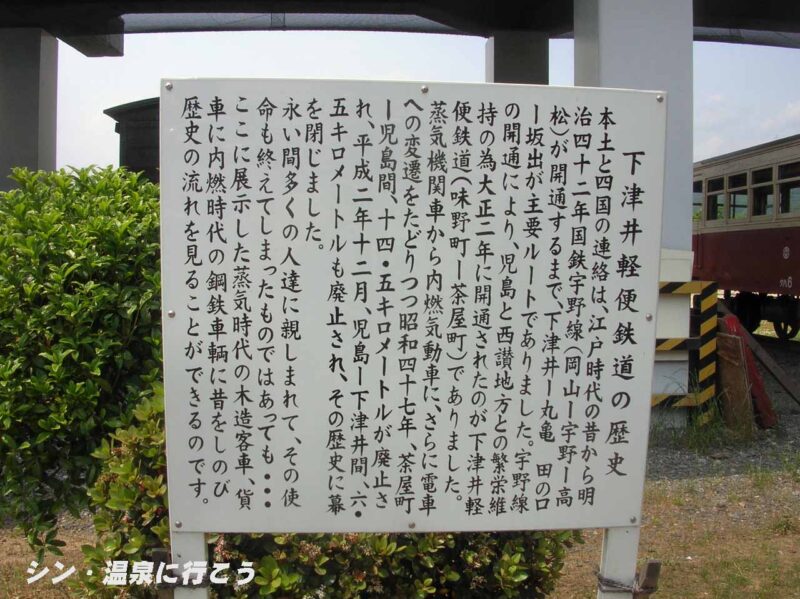 下津井軽便鉄道の歴史
本土と四国の連絡は、江戸時代の昔から明
治四十二年国鉄宇野線(岡山ー宇野ー高
松)が開通するまで、下津井ー丸亀　田の口
ー坂出が主要ルートでありました。宇野線
の開通により、児島と西讃地方との繁栄維
持の為大正二年に開通されたのが下津井軽
便鉄道(味野町ー茶屋町)でありました。
蒸気機関車から内燃気動車に、さらに電車
への変遷をたどりつつ昭和四十七年、茶屋町
ー児島間、十四・五キロメートルが廃止さ
れ、平成二年十二月、児島ー下津井間、六・
五キロメートルも廃止され、その歴史に幕
を閉じました。
永い間多くの人達に親しまれて、その使
命も終えてしまったものではあっても・・・
ここに展示した蒸気時代の木造客車、貨
車に内燃時代の鋼鉄車輌に昔をしのび
歴史の流れを見ることができるのです。
シン・温泉に行こう